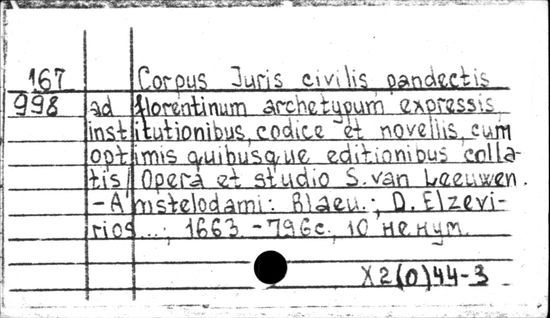 167 Corpus Juris civilis, pandectis
998 ad florentinum archetypum expressis,
institutionibus, codice et novellis, cum
optimis quibusque editionibus colla-
tis/ Opera et studio S. van Leeuwen.
-Amstelodami: Blaeu.; D. Elzevi-
rios...; 1663.-796с., 10 ненум.
X2(0)44-3